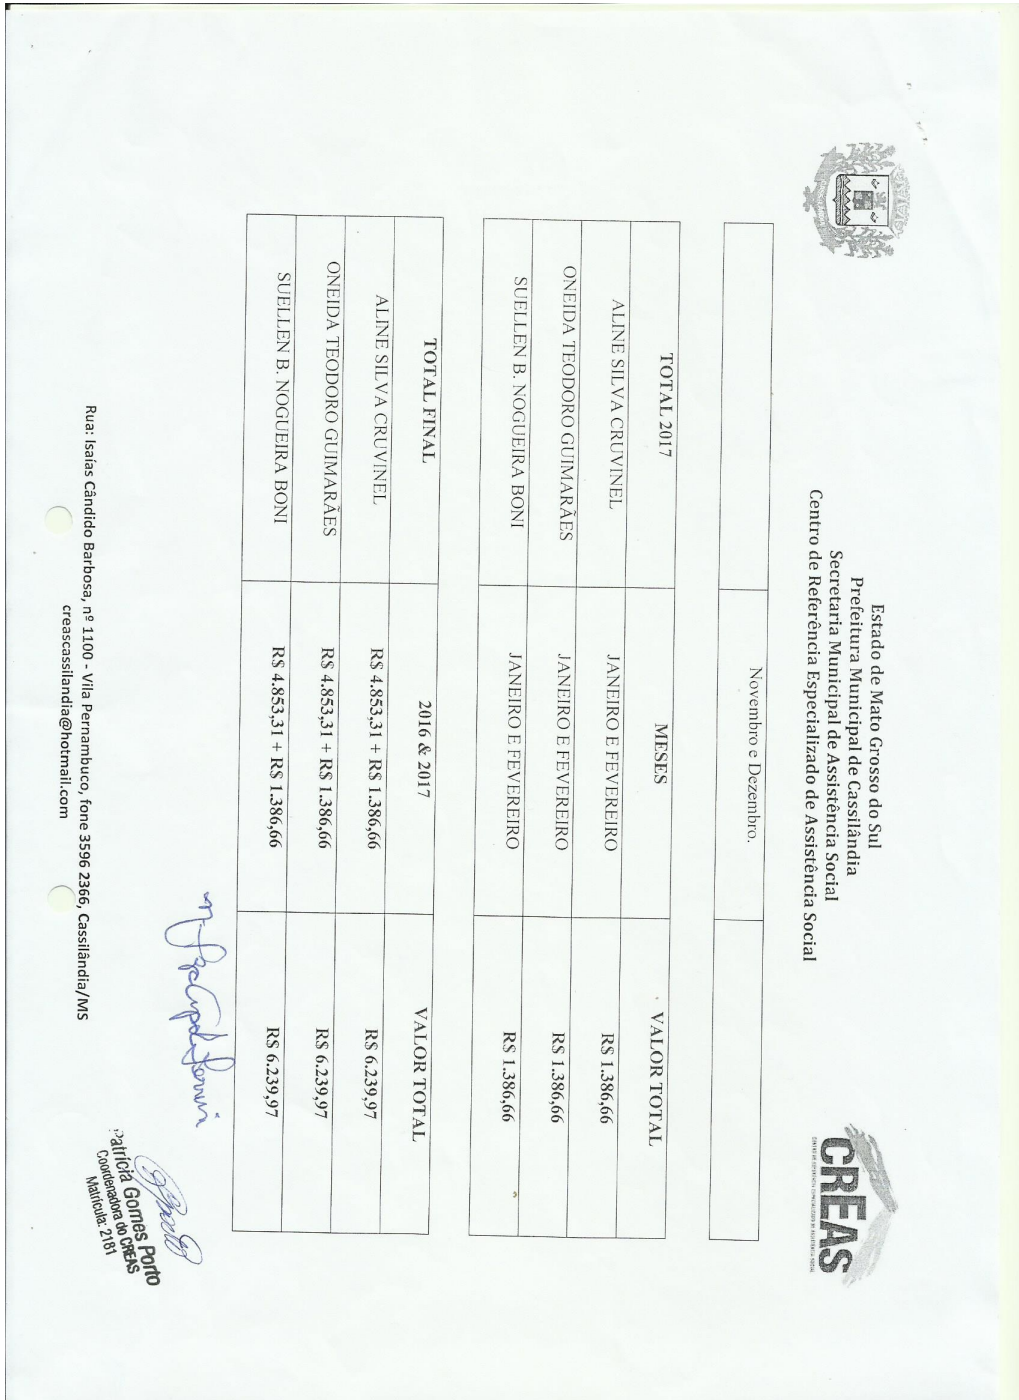 Estado de Mato Grosso do Sul
Prefeitura Municipal de Cassilândia
Secretaria Municipal de Assistência Social
Centro de Referência Especializado de Assistência Social
CREAS
Novembro e Dezembro.
TOTAL 2017 MESES VALOR TOTAL
ALINE SILVA CRUVINEL JANEIRO E FEVEREIRO R$ 1.386,66
ONEIDA TEODORO GUIMARÃES JANEIRO E FEVEREIRO R$ 1.386,66
SUELLEN B. NOGUEIRA BONI JANEIRO E FEVEREIRO R$ 1.386,66
TOTAL FINAL 2016 & 2017 VALOR TOTAL
ALINE SILVA CRUVINEL R$ 4.853,31 + R$ 1.386,66 R$ 6.239,97
ONEIDA TEODORO GUIMARÃES R$ 4.853,31 + R$ 1.386,66 R$ 6.239,97
SUELLEN B. NOGUEIRA BONI R$ 4.853,31 + R$ 1.386,66 R$ 6.239,97
Patrícia Gomes Porto
Coordenadora do CREAS
Matrícula: 2181
Rua: Isaías Cândido Barbosa, nº 1100 - Vila Pernambuco, fone 3596 2366, Cassilândia/MS
creascassilandia@hotmail.com